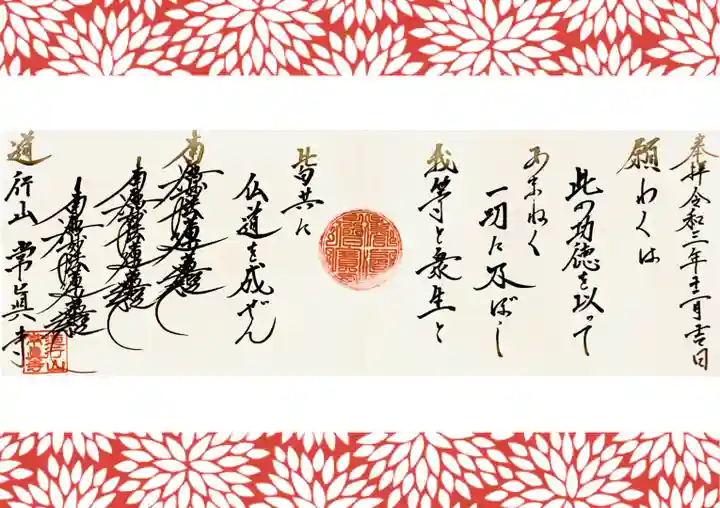 奉拝 令和三年十二月吉日
願わくは
此の功徳を以って
あまねく
一切に及ぼし
我等と衆生と
皆共に
仏道を成ぜん
南無妙法蓮華経
南無妙法蓮華経
南無妙法蓮華経
道行山 常眞寺